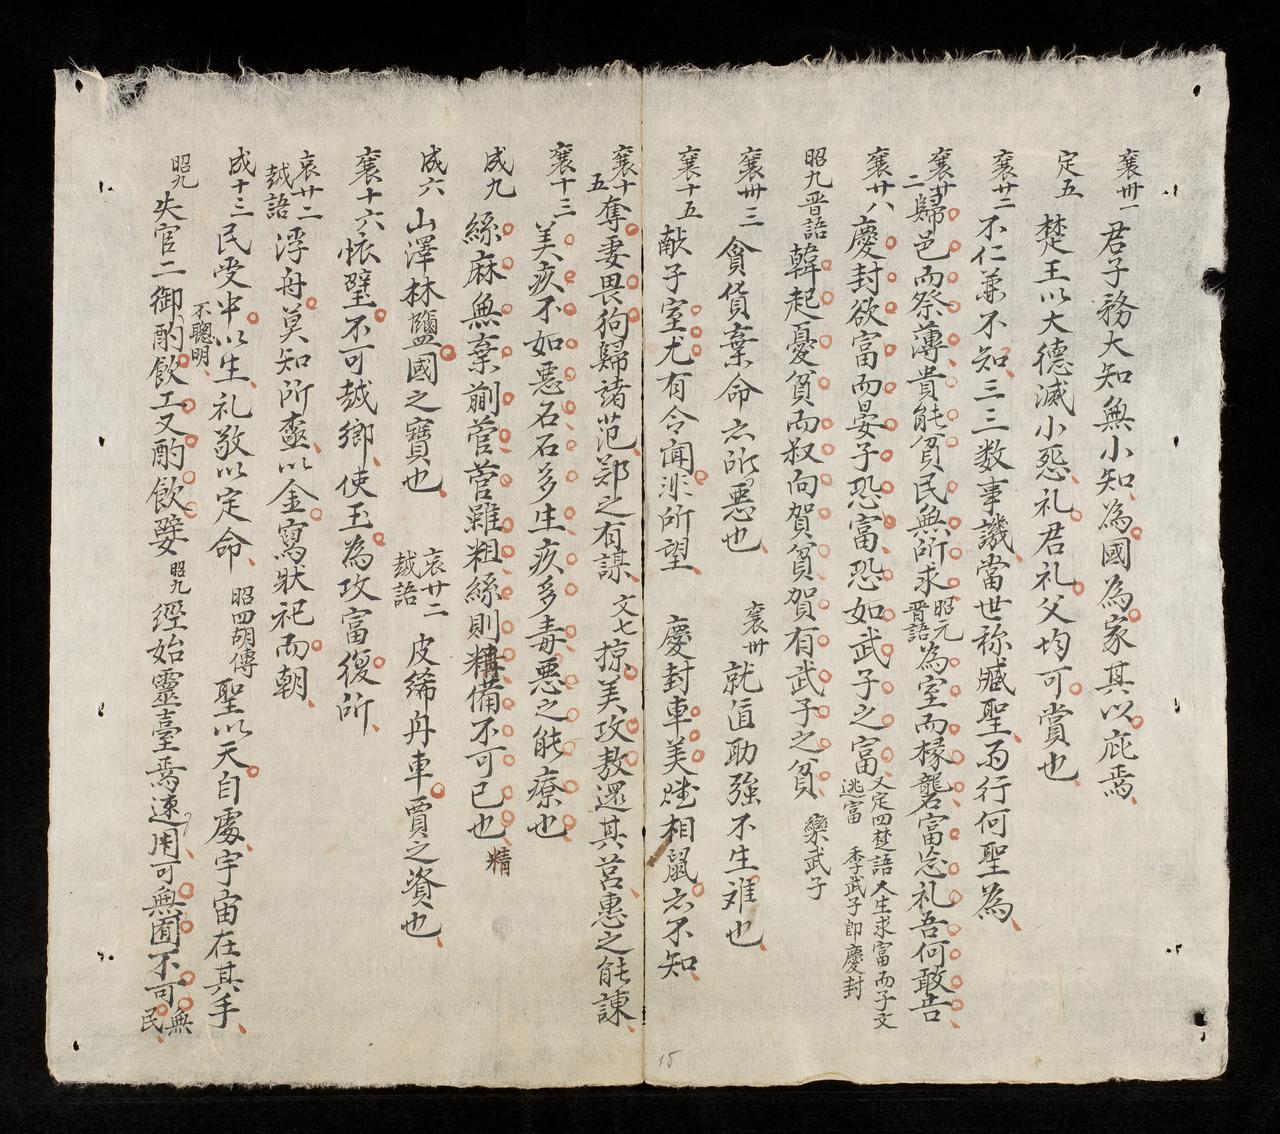 襄卅一 君子務大知無小知為國為家其以庇焉
定五 楚王以大德滅小怨礼君礼父均可賞也
襄廿二 不仁兼不知三三数事譏當世称臧聖雨行何聖為
襄廿二 歸邑而祭薄貴能貧民無所求 昭元晋語 為室而椽礱富忘礼吾何敢告
襄廿八 慶封欲富而晏子恐富恐如武子之富 又定四楚語人生求富而子文逃富 季武子即慶封
昭九晋語 韓起憂貧而叔向賀貧賀有武子之貧 欒武子
襄卅三 貪貨棄命亦所惡也 襄卅 就直助強不生难也
襄十五 献子室尤有令聞非所望 慶封車美 相鼠亦不知
襄十五 奪妻畏狗歸諸范郑之有諆 文七 掠美攻敖還其莒惠之能諌
襄十三 美疢不如惡石石多生疢多毒惡之能療也
成九 絲麻無棄蒯菅菅雖粗絲則精備不可已也 精
成六 山澤林鹽國之寶也 哀廿二越語 皮絺舟車賈之資也
襄十六 懷璧不可越鄉使玉為攻富復所
哀廿二越語 浮舟莫知所 以金寫狀祀而朝
成十三 民受中以生礼敬以定命 昭四胡傳 聖以天自處宇宙在其手
昭九 失官二御酌飲工又酌飲嬖 不聰明 昭九 經始靈臺焉速用可無囿不可無民
15